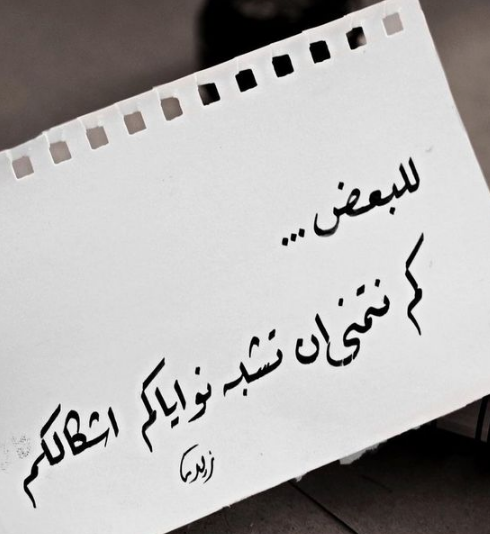 للبعض...
كم نتمنى ان تشبه نواياكم اشكالكم